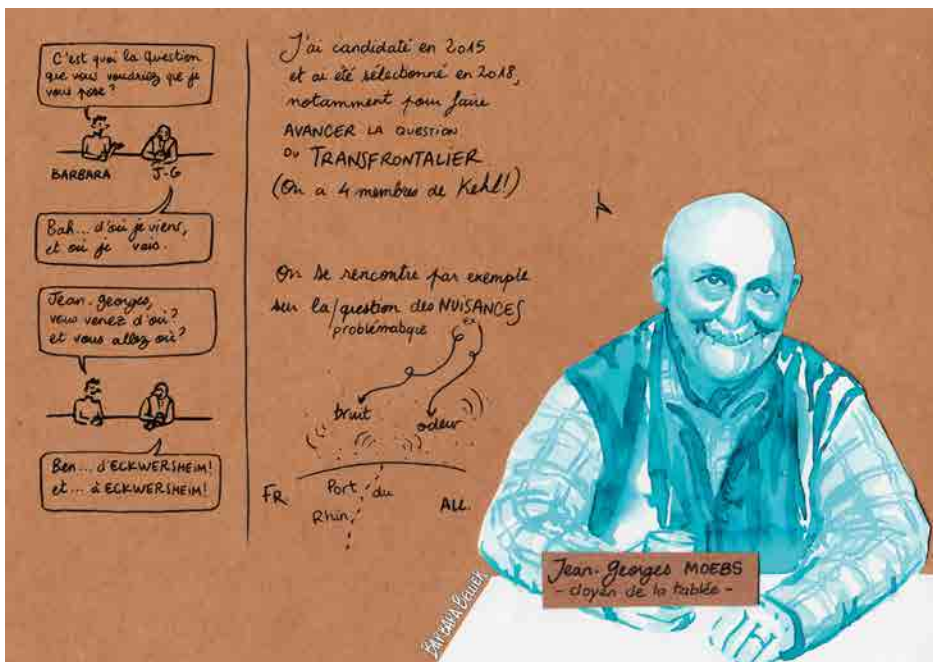 C'est quoi la question
que vous voudriez que je
vous pose ?
BARBARA
J-G
Bah... d'où je viens,
et où je vais.
Jean-Georges,
vous venez d'où ?
et vous allez où ?
Ben... d'ECKWERSHEIM !
et... à ECKWERSHEIM !
J'ai candidaté en 2015
et ai été sélectionné en 2018,
notamment pour faire
AVANCER LA QUESTION
DU TRANSFRONTALIER
(On a 4 membres de Kehl !)
On se rencontre par exemple
sur la/question des NUISANCES
problématique
ex
bruit
odeur
FR
Port du
Rhin
ALL.
Jean-Georges MOEBS
- doyen de la tablée -
BARBARA